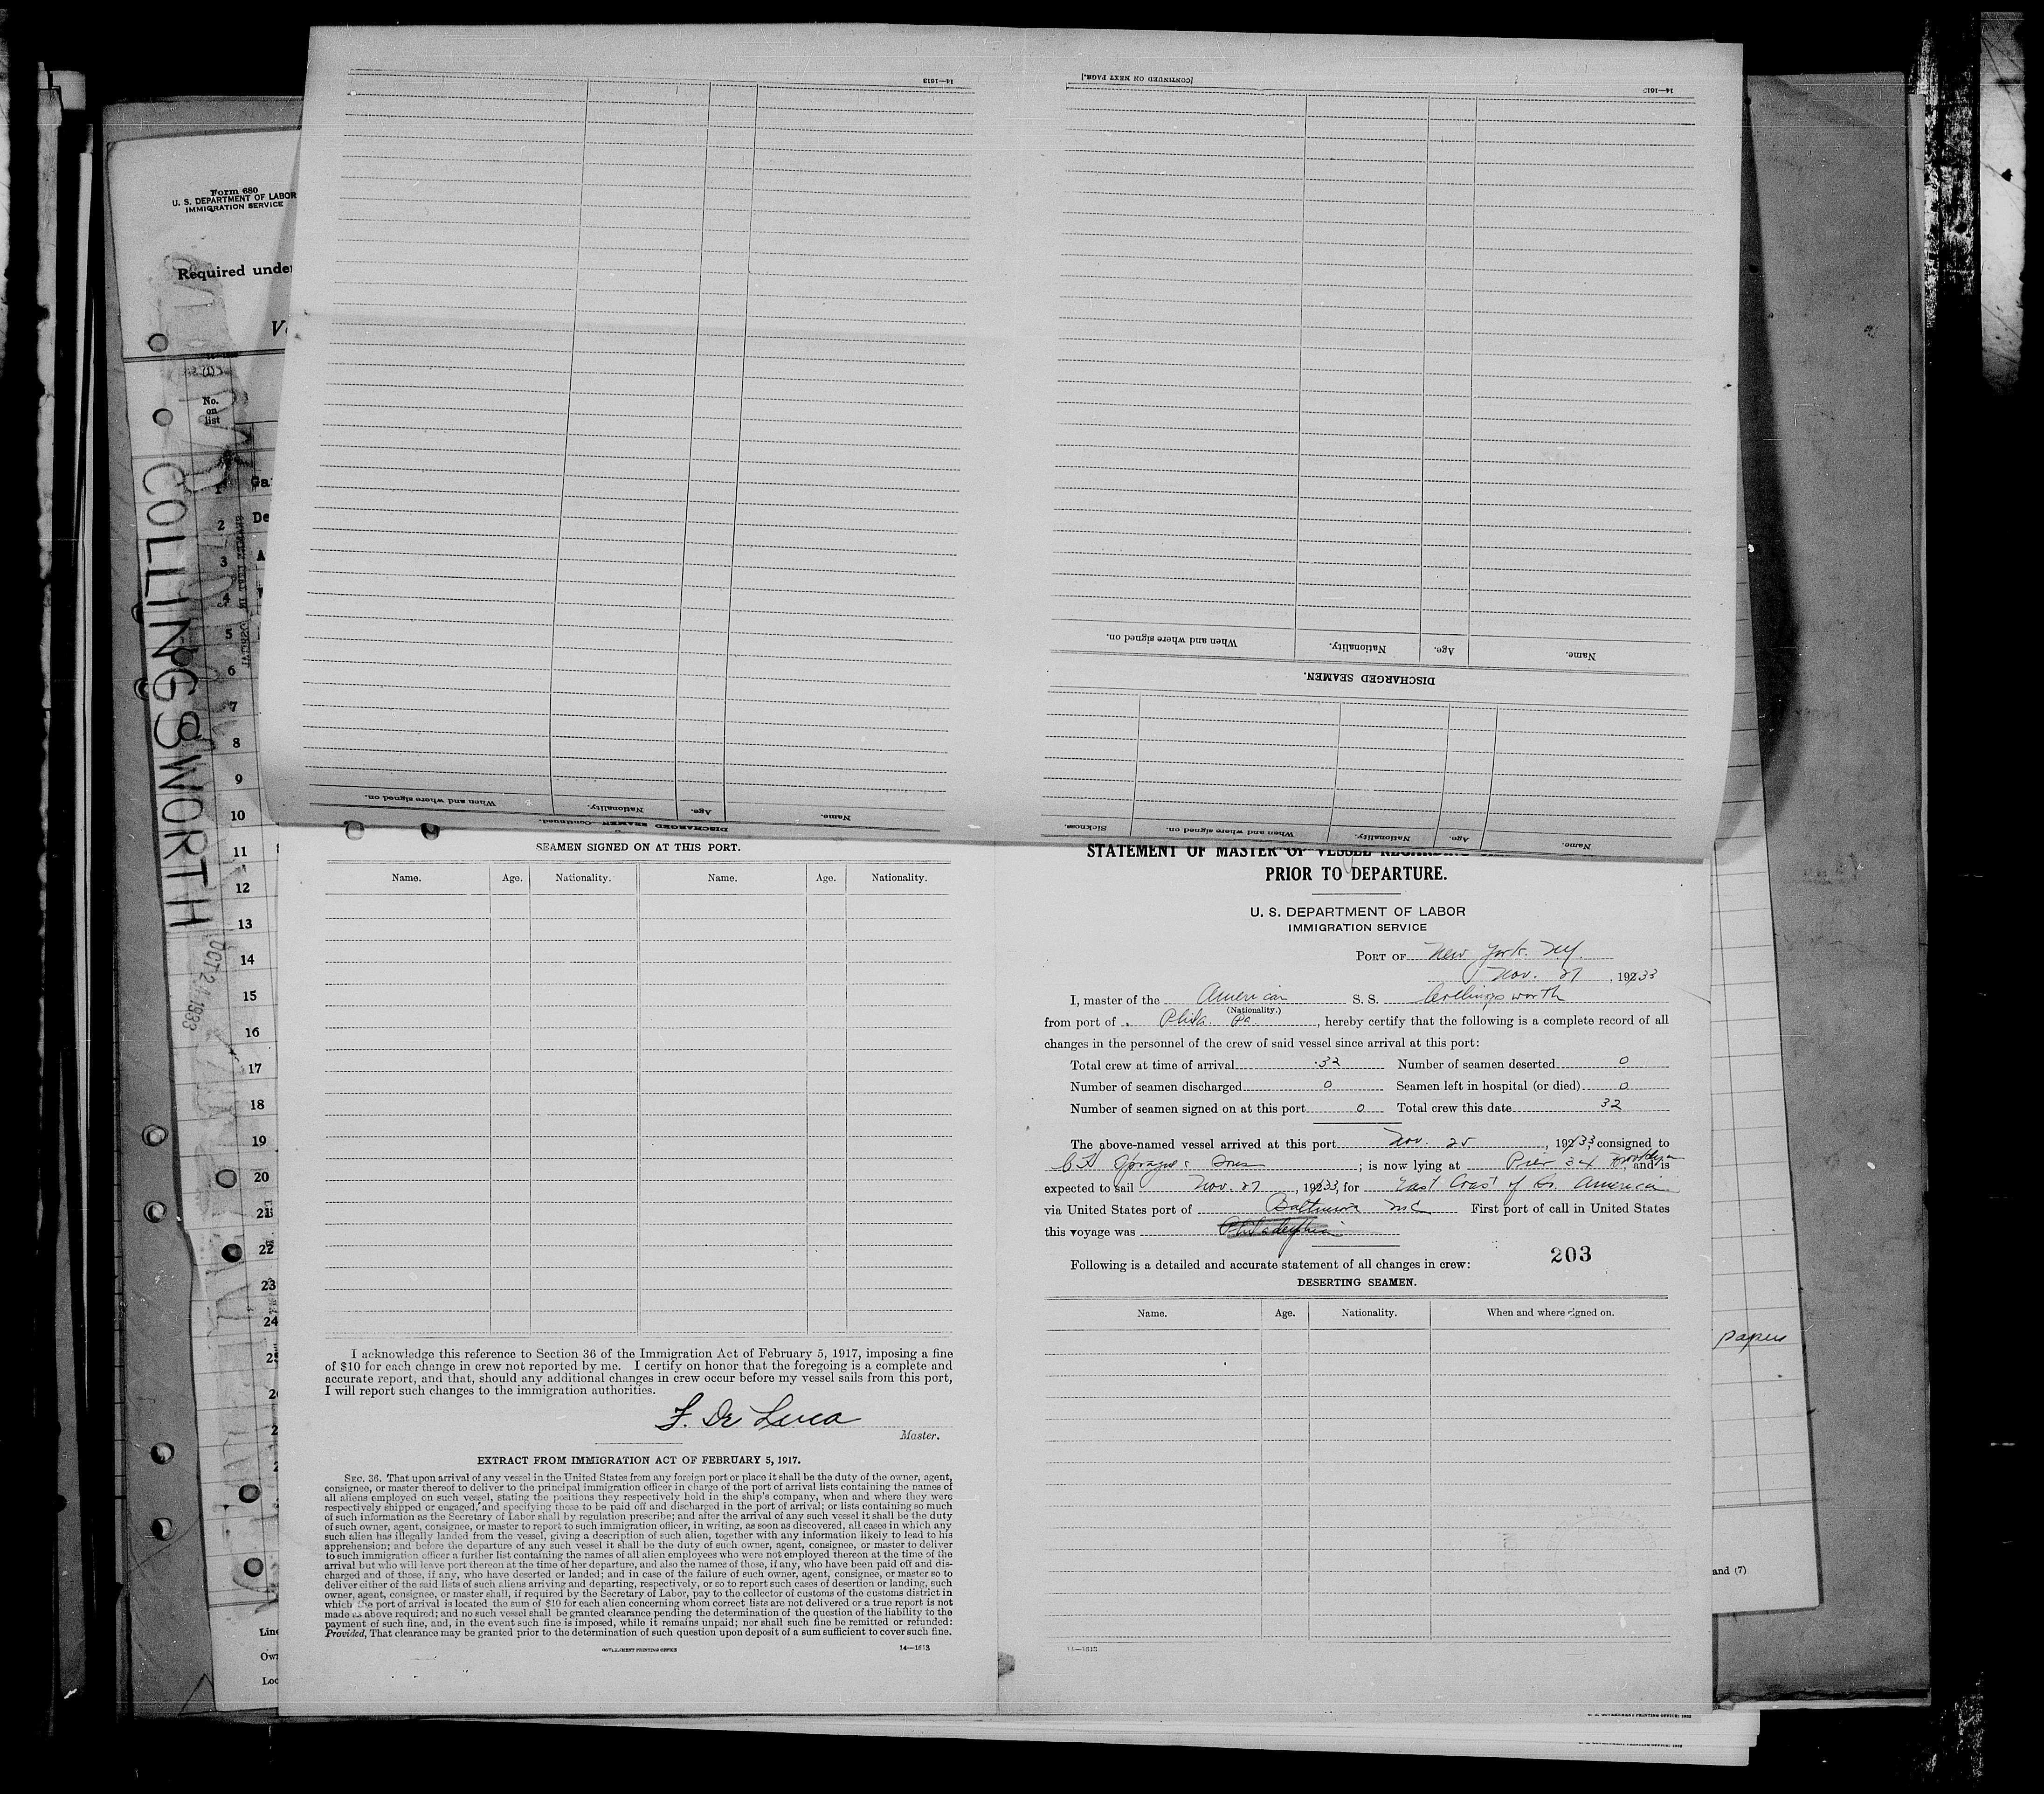 14—1613
[CONTINUED ON NEXT PAGE.]
14—1613
Form 680
U. S. DEPARTMENT OF LABOR
IMMIGRATION SERVICE
Required under
No.
on
list
COLLINGSWORTH
OCT 24 1933
1
2
3
4
5
6
7
8
9
10
11
12
13
14
15
16
17
18
19
20
21
22
23
24
Ga
De
A
When and where signed on. Nationality. Age. Name.
DISCHARGED SEAMEN—Continued.
When and where signed on. Nationality. Age. Name.
DISCHARGED SEAMEN.
Sickness. When and where signed on. Nationality. Age. Name.
SEAMEN SIGNED ON AT THIS PORT.
Name. Age. Nationality. Name. Age. Nationality.
I acknowledge this reference to Section 36 of the Immigration Act of February 5, 1917, imposing a fine
of $10 for each change in crew not reported by me. I certify on honor that the foregoing is a complete and
accurate report, and that, should any additional changes in crew occur before my vessel sails from this port,
I will report such changes to the immigration authorities.
F. De Luca
Master.
EXTRACT FROM IMMIGRATION ACT OF FEBRUARY 5, 1917.
SEC. 36. That upon arrival of any vessel in the United States from any foreign port or place it shall be the duty of the owner, agent,
consignee, or master thereof to deliver to the principal immigration officer in charge of the port of arrival lists containing the names of
all aliens employed on such vessel, stating the positions they respectively hold in the ship's company, when and where they were
respectively shipped or engaged, and specifying those to be paid off and discharged in the port of arrival; or lists containing so much
of such information as the Secretary of Labor shall by regulation prescribe; and after the arrival of any such vessel it shall be the duty
of such owner, agent, consignee, or master to report to such immigration officer, in writing, as soon as discovered, all cases in which any
such alien has illegally landed from the vessel, giving a description of such alien, together with any information likely to lead to his
apprehension; and before the departure of any such vessel it shall be the duty of such owner, agent, consignee, or master to deliver
to such immigration officer a further list containing the names of all alien employees who were not employed thereon at the time of the
arrival but who will leave port thereon at the time of her departure, and also the names of those, if any, who have been paid off and dis-
charged and of those, if any, who have deserted or landed; and in case of the failure of such owner, agent, consignee, or master so to
deliver either of the said lists of such aliens arriving and departing, respectively, or so to report such cases of desertion or landing, such
owner, agent, consignee, or master shall, if required by the Secretary of Labor, pay to the collector of customs of the customs district in
which the port of arrival is located the sum of $10 for each alien concerning whom correct lists are not delivered or a true report is not
made as above required; and no such vessel shall be granted clearance pending the determination of the question of the liability to the
payment of such fine, and, in the event such fine is imposed, while it remains unpaid; nor shall such fine be remitted or refunded:
Provided, That clearance may be granted prior to the determination of such question upon deposit of a sum sufficient to cover such fine.
GOVERNMENT PRINTING OFFICE 14—1613
STATEMENT OF MASTER OF VESSEL REGARDING
PRIOR TO DEPARTURE.
U. S. DEPARTMENT OF LABOR
IMMIGRATION SERVICE
PORT OF New York. NY.
Nov. 27, 19233
I, master of the American S. S. Collingsworth
(Nationality.)
from port of Phila. Pa., hereby certify that the following is a complete record of all
changes in the personnel of the crew of said vessel since arrival at this port:
Total crew at time of arrival 32 Number of seamen deserted 0
Number of seamen discharged 0 Seamen left in hospital (or died) 0
Number of seamen signed on at this port 0 Total crew this date 32
The above-named vessel arrived at this port Nov. 25, 19233, consigned to
C H Sprague & Sons; is now lying at Pier 34 Brooklyn, and is
expected to sail Nov. 27, 19233, for East Coast of So. America
via United States port of Baltimore Md First port of call in United States
this voyage was Philadelphia
203
Following is a detailed and accurate statement of all changes in crew:
DESERTING SEAMEN.
Name. Age. Nationality. When and where signed on.
14—1613
papers
and (7)